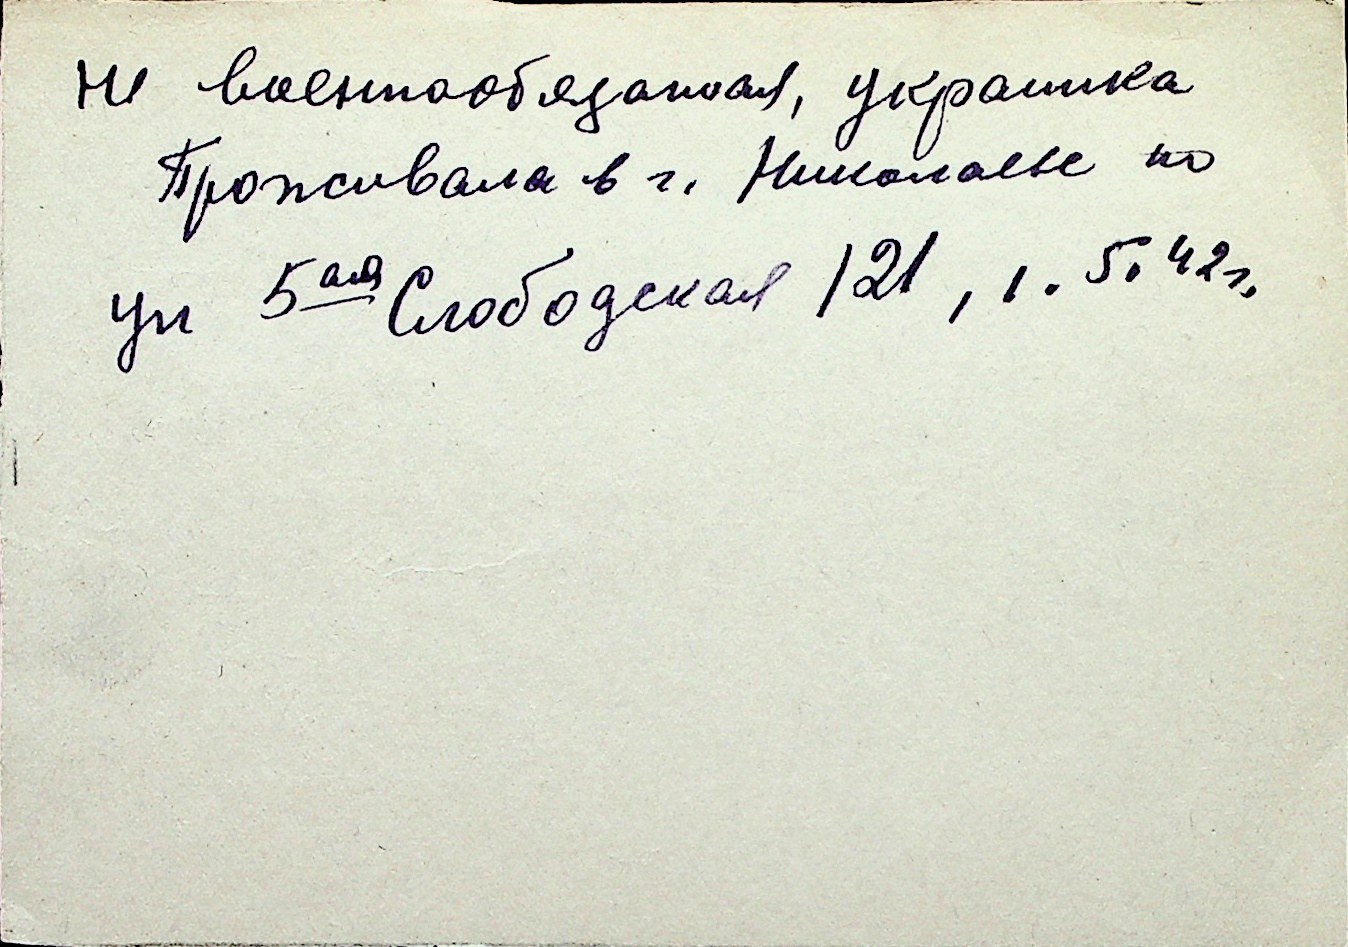 не военнообязаная, украинка
Проживала в г. Николаеве по
ул 5ая Слободская 121, 1. 5. 42г.